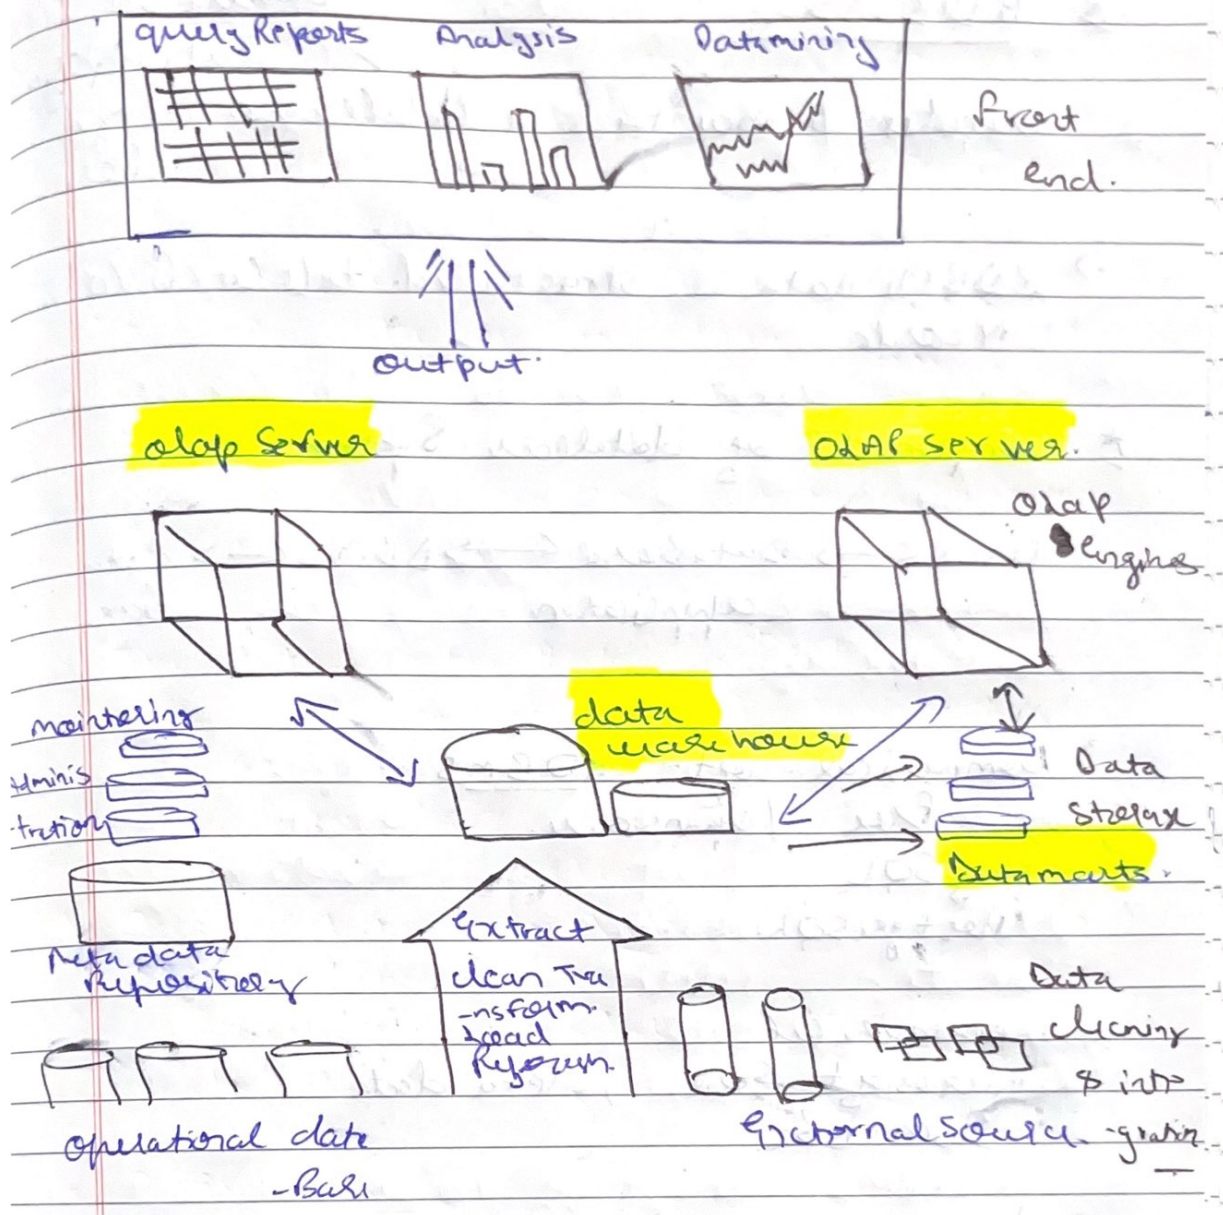 query Reports Analysis Datamining
front
end.
output.
olap Server OLAP server.
Olap
engines
data
warehouse
Data
Storage
Datamarts.
Administration
Metadata
Repository
Extract
clean Tra
-nsform.
Load
Refresh.
Data
cleaning
& inte
-gration
operational date
-Base
External Source